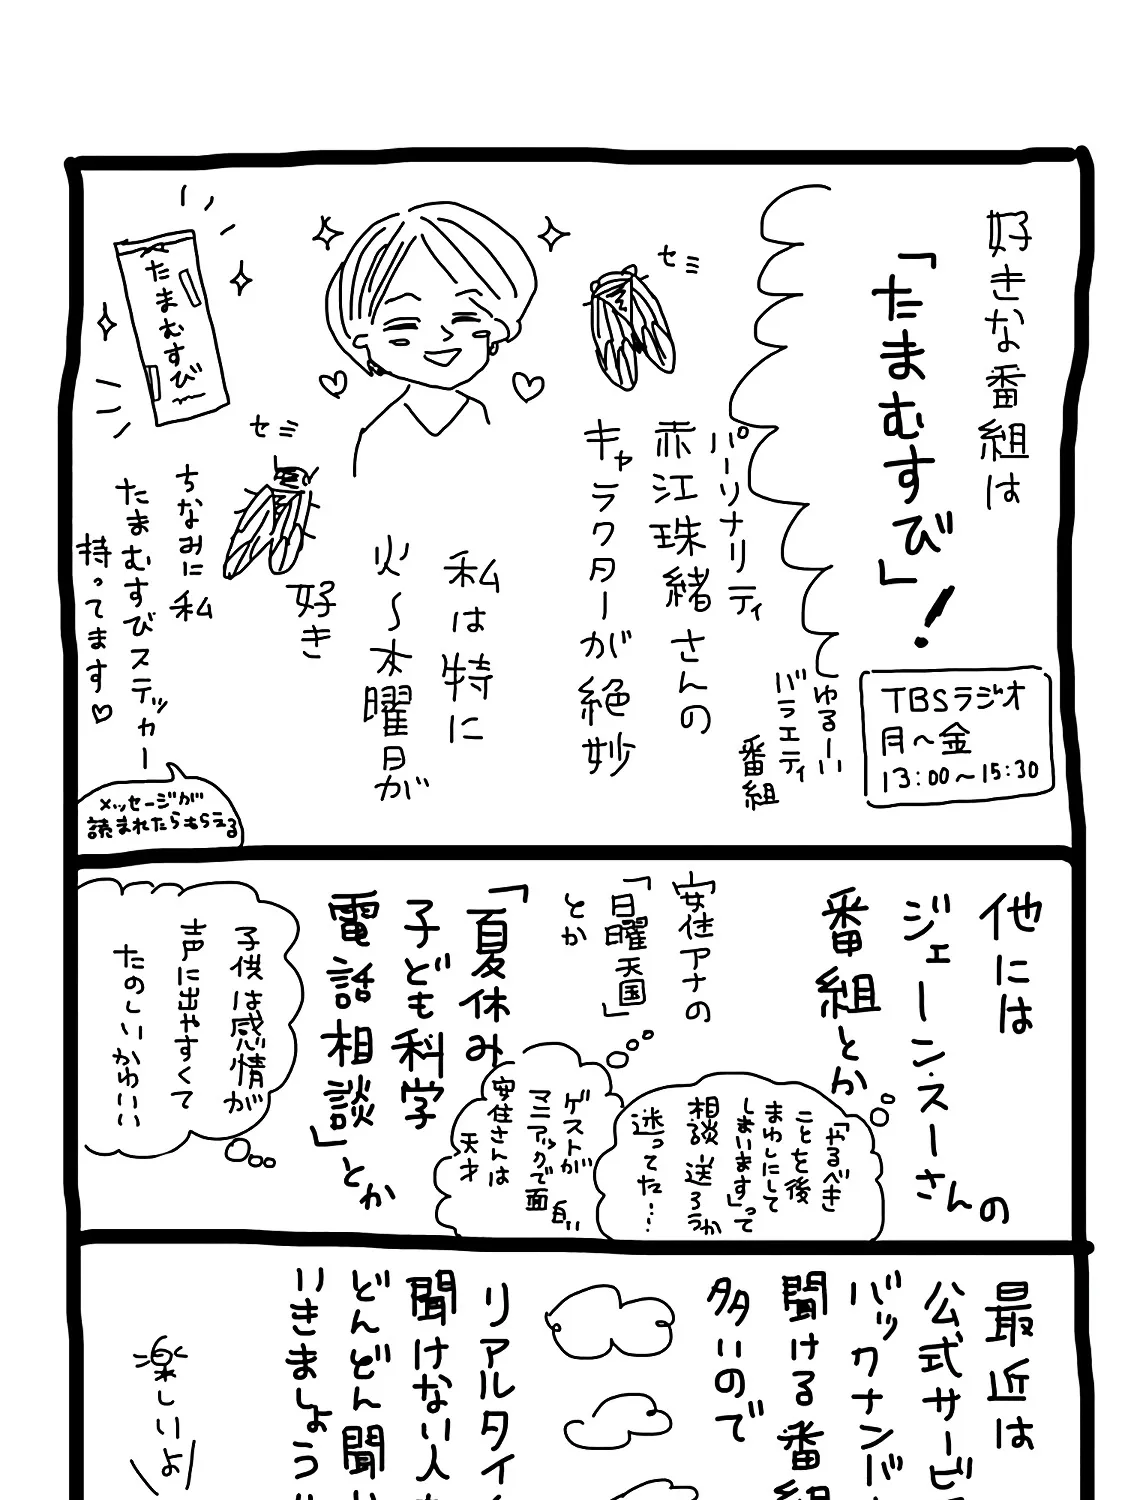 好きな番組は
「たまむすび」！
TBSラジオ
月〜金
13:00〜15:30
ゆるーい
バラエティ
番組
パーソナリティ
赤江珠緒さんの
キャラクターが絶妙
セミ
私は特に
火〜木曜日が
好き
セミ
たまむすび
ちなみに私
たまむすびステッカー
持ってます♡
メッセージが
読まれたらもらえる
他には
ジェーン・スーさんの
番組とか
「やるべき
ことを後
まわしにして
しまいます」って
相談送ろうか
迷ってた…
安住アナの
「日曜天国」
とか
ゲストが
マニアックで面白い
安住さんは
天才
「夏休み
子ども科学
電話相談」とか
子供は感情が
声に出やすくて
たのしいかわいい
最近は
公式サービ
バックナンバ
聞ける番組
多いので
リアルタイ
聞けない人
どんどん聞い
いきましょう
楽しいよ